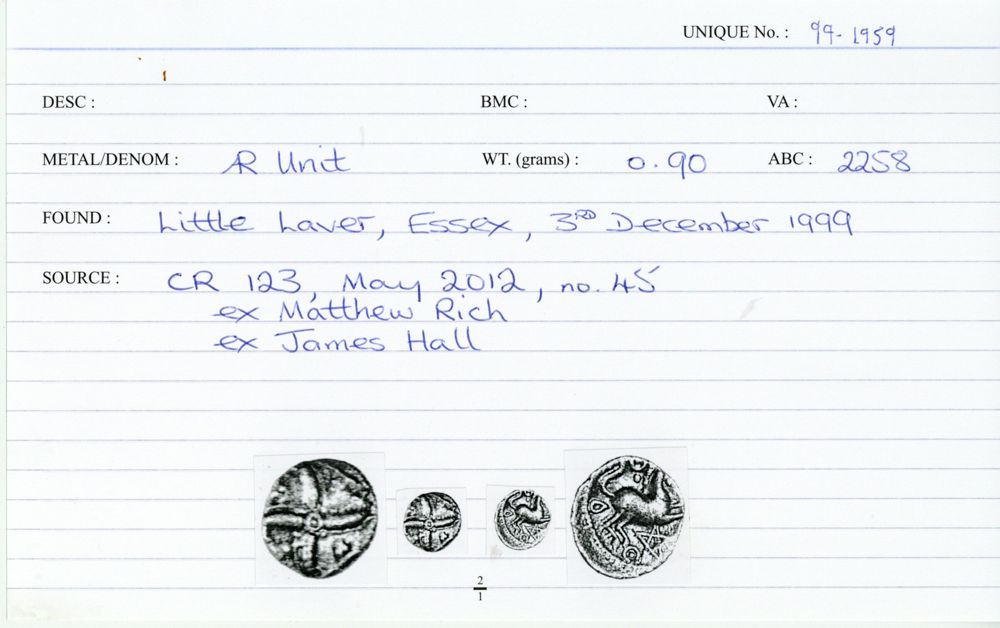 UNIQUE No. : 99-1959
DESC : BMC : VA :
METAL/DENOM : AR Unit WT. (grams) : 0.90 ABC : 2258
FOUND : Little Laver, Essex, 3RD December 1999
SOURCE : CR 123, May 2012, no. 45
ex Matthew Rich
ex James Hall
2
1